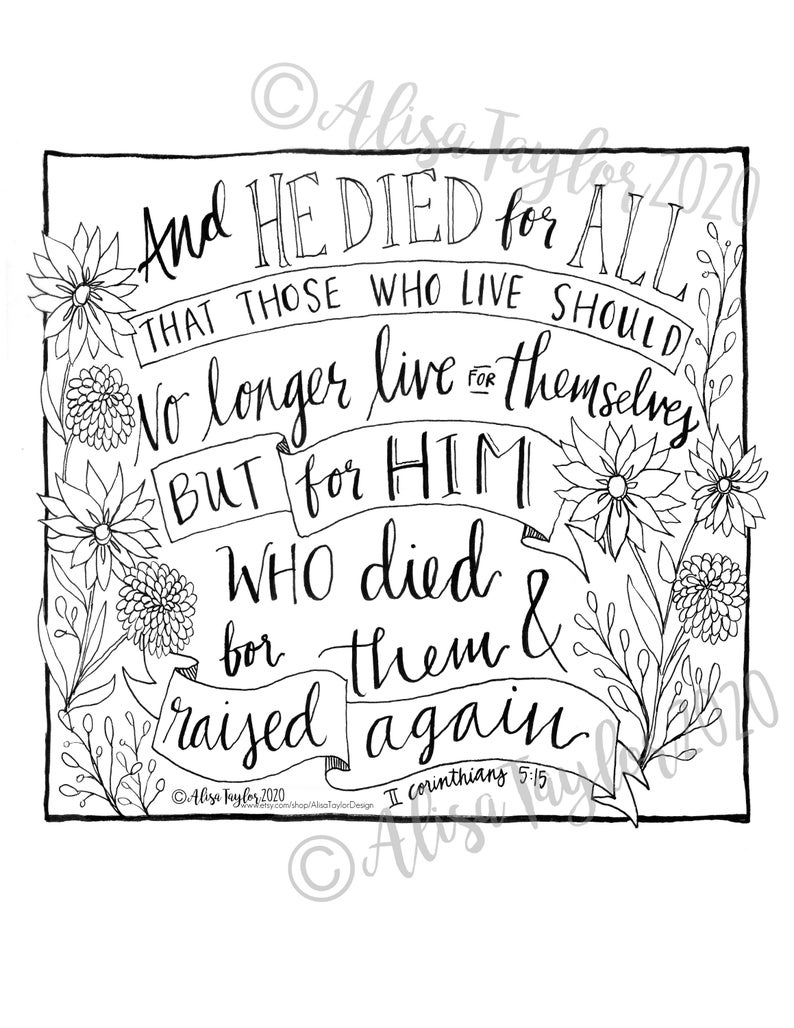 ©Alisa Taylor 2020
And HE DIED for ALL
THAT THOSE WHO LIVE SHOULD
No longer live FOR themselves
BUT for HIM
WHO died
for them &
raised again
II corinthians 5:15
©Alisa Taylor 2020
www.etsy.com/shop/AlisaTaylorDesign
©Alisa Taylor 2020